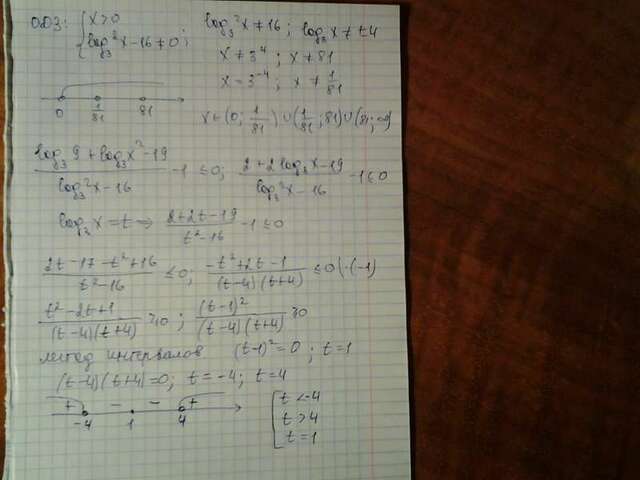 ОДЗ: { x>0 ; log₃²x-16≠0; log₃²x≠16; log₃x≠±4
x≠3⁴; x≠81
x=3⁻⁴; x≠1/81
0 1/81 81
x∈(0; 1/81)∪(1/81; 81)∪(81; ∞)
(log₃9+log₃x²-19)/(log₃²x-16) -1 ≤0; (2+2log₃x-19)/(log₃²x-16) -1≤0
log₃x=t ⇒ (2+2t-19)/(t²-16) -1≤0
(2t-17-t²+16)/(t²-16) ≤0; (-t²+2t-1)/((t-4)(t+4)) ≤0 |·(-1)
(t²-2t+1)/((t-4)(t+4)) ≥0; (t-1)²/((t-4)(t+4)) ≥0
метод интервалов (t-1)²=0; t=1
(t-4)(t+4)=0; t=-4; t=4
+ - - +
-4 1 4
[ t<-4
t>4
t=1